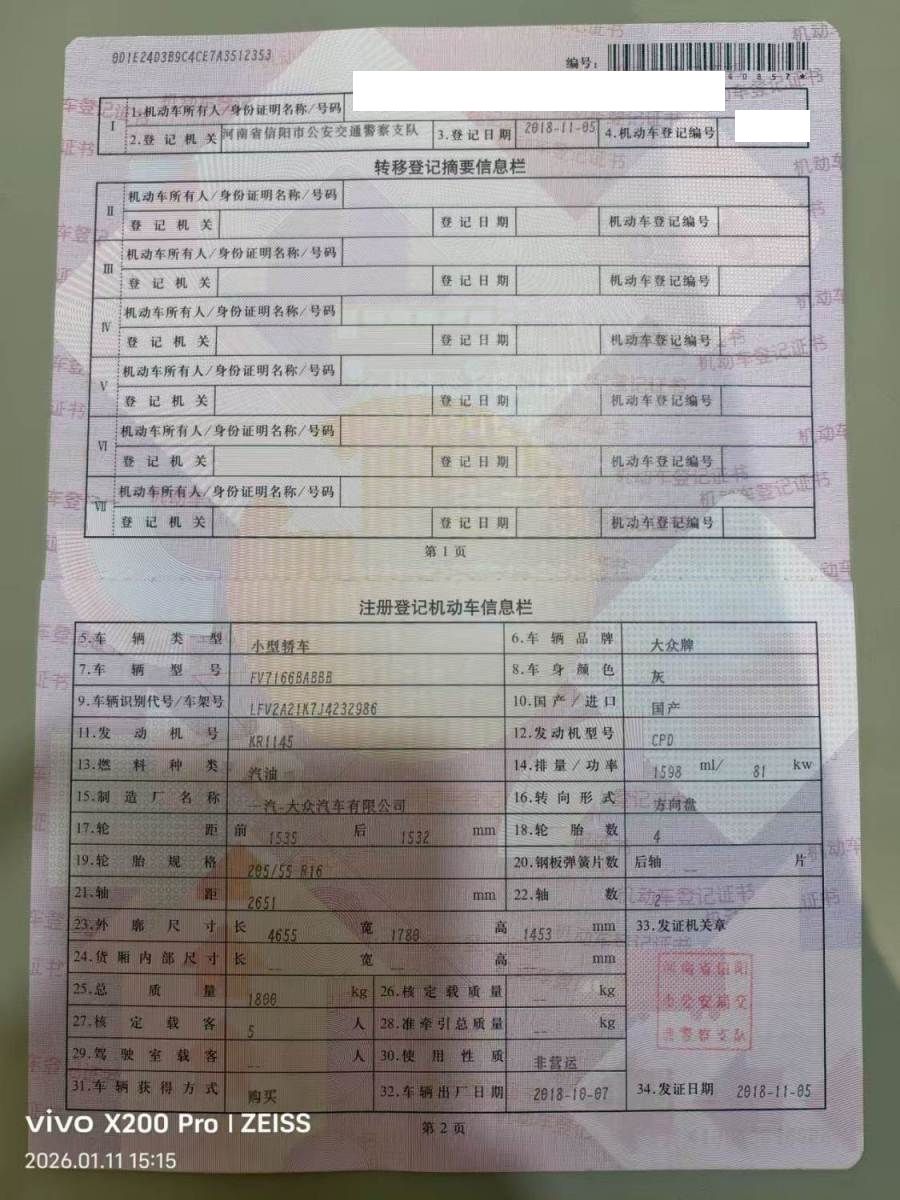 0D1E24D3B9C4CE7A3512353
编号:
1.机动车所有人/身份证明名称/号码
I
2.登记机关 河南省信阳市公安交通警察支队 3.登记日期 2018-11-05 4.机动车登记编号
转移登记摘要信息栏
机动车所有人/身份证明名称/号码
II
登记机关 登记日期 机动车登记编号
机动车所有人/身份证明名称/号码
III
登记机关 登记日期 机动车登记编号
机动车所有人/身份证明名称/号码
IV
登记机关 登记日期 机动车登记编号
机动车所有人/身份证明名称/号码
V
登记机关 登记日期 机动车登记编号
机动车所有人/身份证明名称/号码
VI
登记机关 登记日期 机动车登记编号
机动车所有人/身份证明名称/号码
VII
登记机关 登记日期 机动车登记编号
第1页
注册登记机动车信息栏
5.车辆类型 小型轿车 6.车辆品牌 大众牌
7.车辆型号 FV7166BABBB 8.车身颜色 灰
9.车辆识别代号/车架号 LFV2A21K7J4232986 10.国产/进口 国产
11.发动机号 KR1145 12.发动机型号 CPD
13.燃料种类 汽油 14.排量/功率 1598 ml/ 81 kw
15.制造厂名称 一汽-大众汽车有限公司 16.转向形式 方向盘
17.轮距 前 1535 后 1532 mm 18.轮胎数 4
19.轮胎规格 205/55 R16 20.钢板弹簧片数 后轴 -- 片
21.轴距 2651 mm 22.轴数 2
23.外廓尺寸 长 4655 宽 1780 高 1453 mm 33.发证机关章
24.货厢内部尺寸 长 -- 宽 -- 高 -- mm
河南省信阳
市公安局交
通警察支队
25.总质量 1800 kg 26.核定载质量 -- kg
27.核定载客 5 人 28.准牵引总质量 -- kg
29.驾驶室载客 -- 人 30.使用性质 非营运
31.车辆获得方式 购买 32.车辆出厂日期 2018-10-07 34.发证日期 2018-11-05
第2页
vivo X200 Pro | ZEISS
2026.01.11 15:15